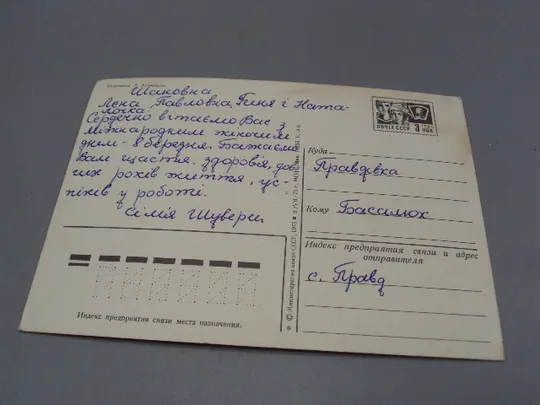 Шановна
Лєна Павловна, Гиня і Ната-
лочка!
Сердечно вітаємо Вас з
міжнародним жіночим
днем - 8 березня. Бажаємо
Вам щастя, здоровія, дов-
гих років життя, ус-
піхів у роботі.
Сімія Шувери.
ПОЧТА СССР 3 КОП
Куда Правдівка
Кому Басалюк
Индекс предприятия связи и адрес
отправителя
с. Правд
Индекс предприятия связи места назначения.
© Министерство связи СССР, 1973